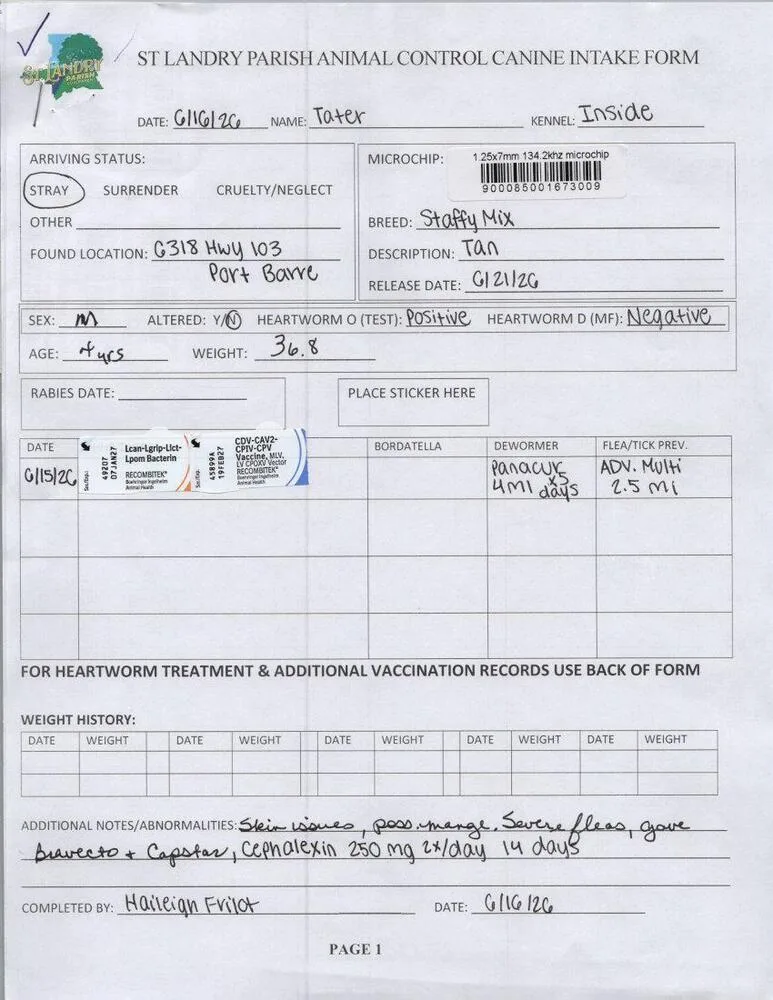 ST LANDRY
PARISH
ST LANDRY PARISH ANIMAL CONTROL CANINE INTAKE FORM
DATE: 6/16/26 NAME: Tater KENNEL: Inside
ARRIVING STATUS:
STRAY SURRENDER CRUELTY/NEGLECT
OTHER
FOUND LOCATION: 6318 Hwy 103
Port Barre
MICROCHIP: 1.25x7mm 134.2khz microchip
900085001673009
BREED: Staffy Mix
DESCRIPTION: Tan
RELEASE DATE: 6/21/26
SEX: M ALTERED: Y/N HEARTWORM O (TEST): Positive HEARTWORM D (MF): Negative
AGE: 4 yrs WEIGHT: 36.8
RABIES DATE: PLACE STICKER HERE
DATE BORDATELLA DEWORMER FLEA/TICK PREV.
6/15/26
Ser/Exp.:
49207
07JAN27
Lcan-Lgrip-Lict-
Lpom Bacterin
RECOMBITEK®
Boehringer Ingelheim
Animal Health
Ser/Exp.:
45899A
19FEB27
CDV-CAV2-
CPIV-CPV
Vaccine, MLV,
LV CPOXV Vector
RECOMBITEK®
Boehringer Ingelheim
Animal Health
Panacur
4ml x5 days
ADV. Multi
2.5 ml
FOR HEARTWORM TREATMENT & ADDITIONAL VACCINATION RECORDS USE BACK OF FORM
WEIGHT HISTORY:
DATE WEIGHT DATE WEIGHT DATE WEIGHT DATE WEIGHT DATE WEIGHT
ADDITIONAL NOTES/ABNORMALITIES: Skin issues, poss. mange. Severe fleas, gave
Bravecto + Capstar, Cephalexin 250 mg 2x/day 14 days
COMPLETED BY: Haileigh Frilot DATE: 6/16/26
PAGE 1